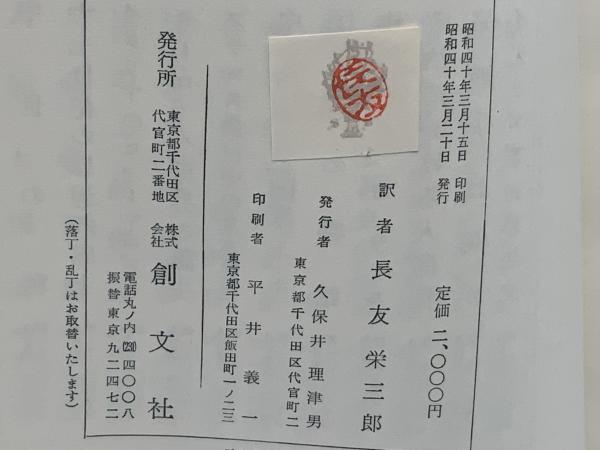 昭和四十年三月十五日 印刷
昭和四十年三月二十日 発行
定価 二、〇〇〇円
訳者 長友栄三郎
発行者 久保井理津男
東京都千代田区代官町二
印刷者 平井義一
東京都千代田区飯田町一ノ二三
発行所 東京都千代田区
代官町二番地
株式
会社 創文社
電話丸ノ内(231)四〇〇八
振替東京九二四七二
(落丁・乱丁はお取替いたします)